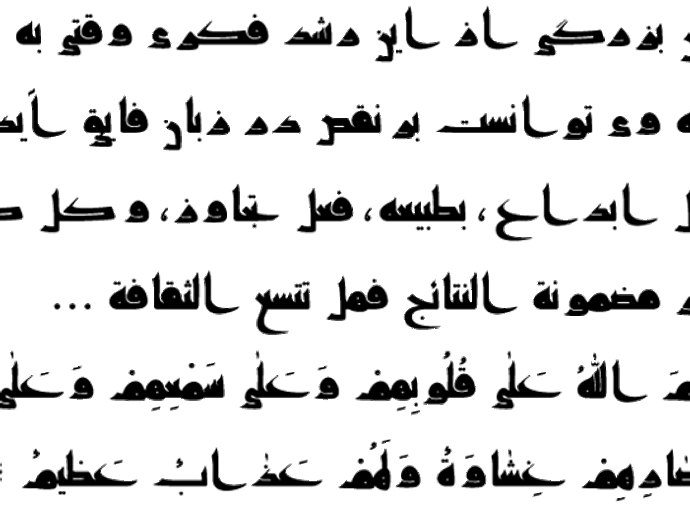 بزرگی از این رشد فکری وقتی به
وی توانست بر نقص در زبان فایق
ابداع، بطبيعه، فعل تجاوز، وكل
مضمونة النتائج فهل تتسع الثقافة ...
اللهُ عَلٰى قُلُوبِهِمْ وَعَلٰى سَمْعِهِمْ وَعَلٰى
غِشٰاوَةٌ وَلَهُمْ عَذٰابٌ عَظِيمٌ